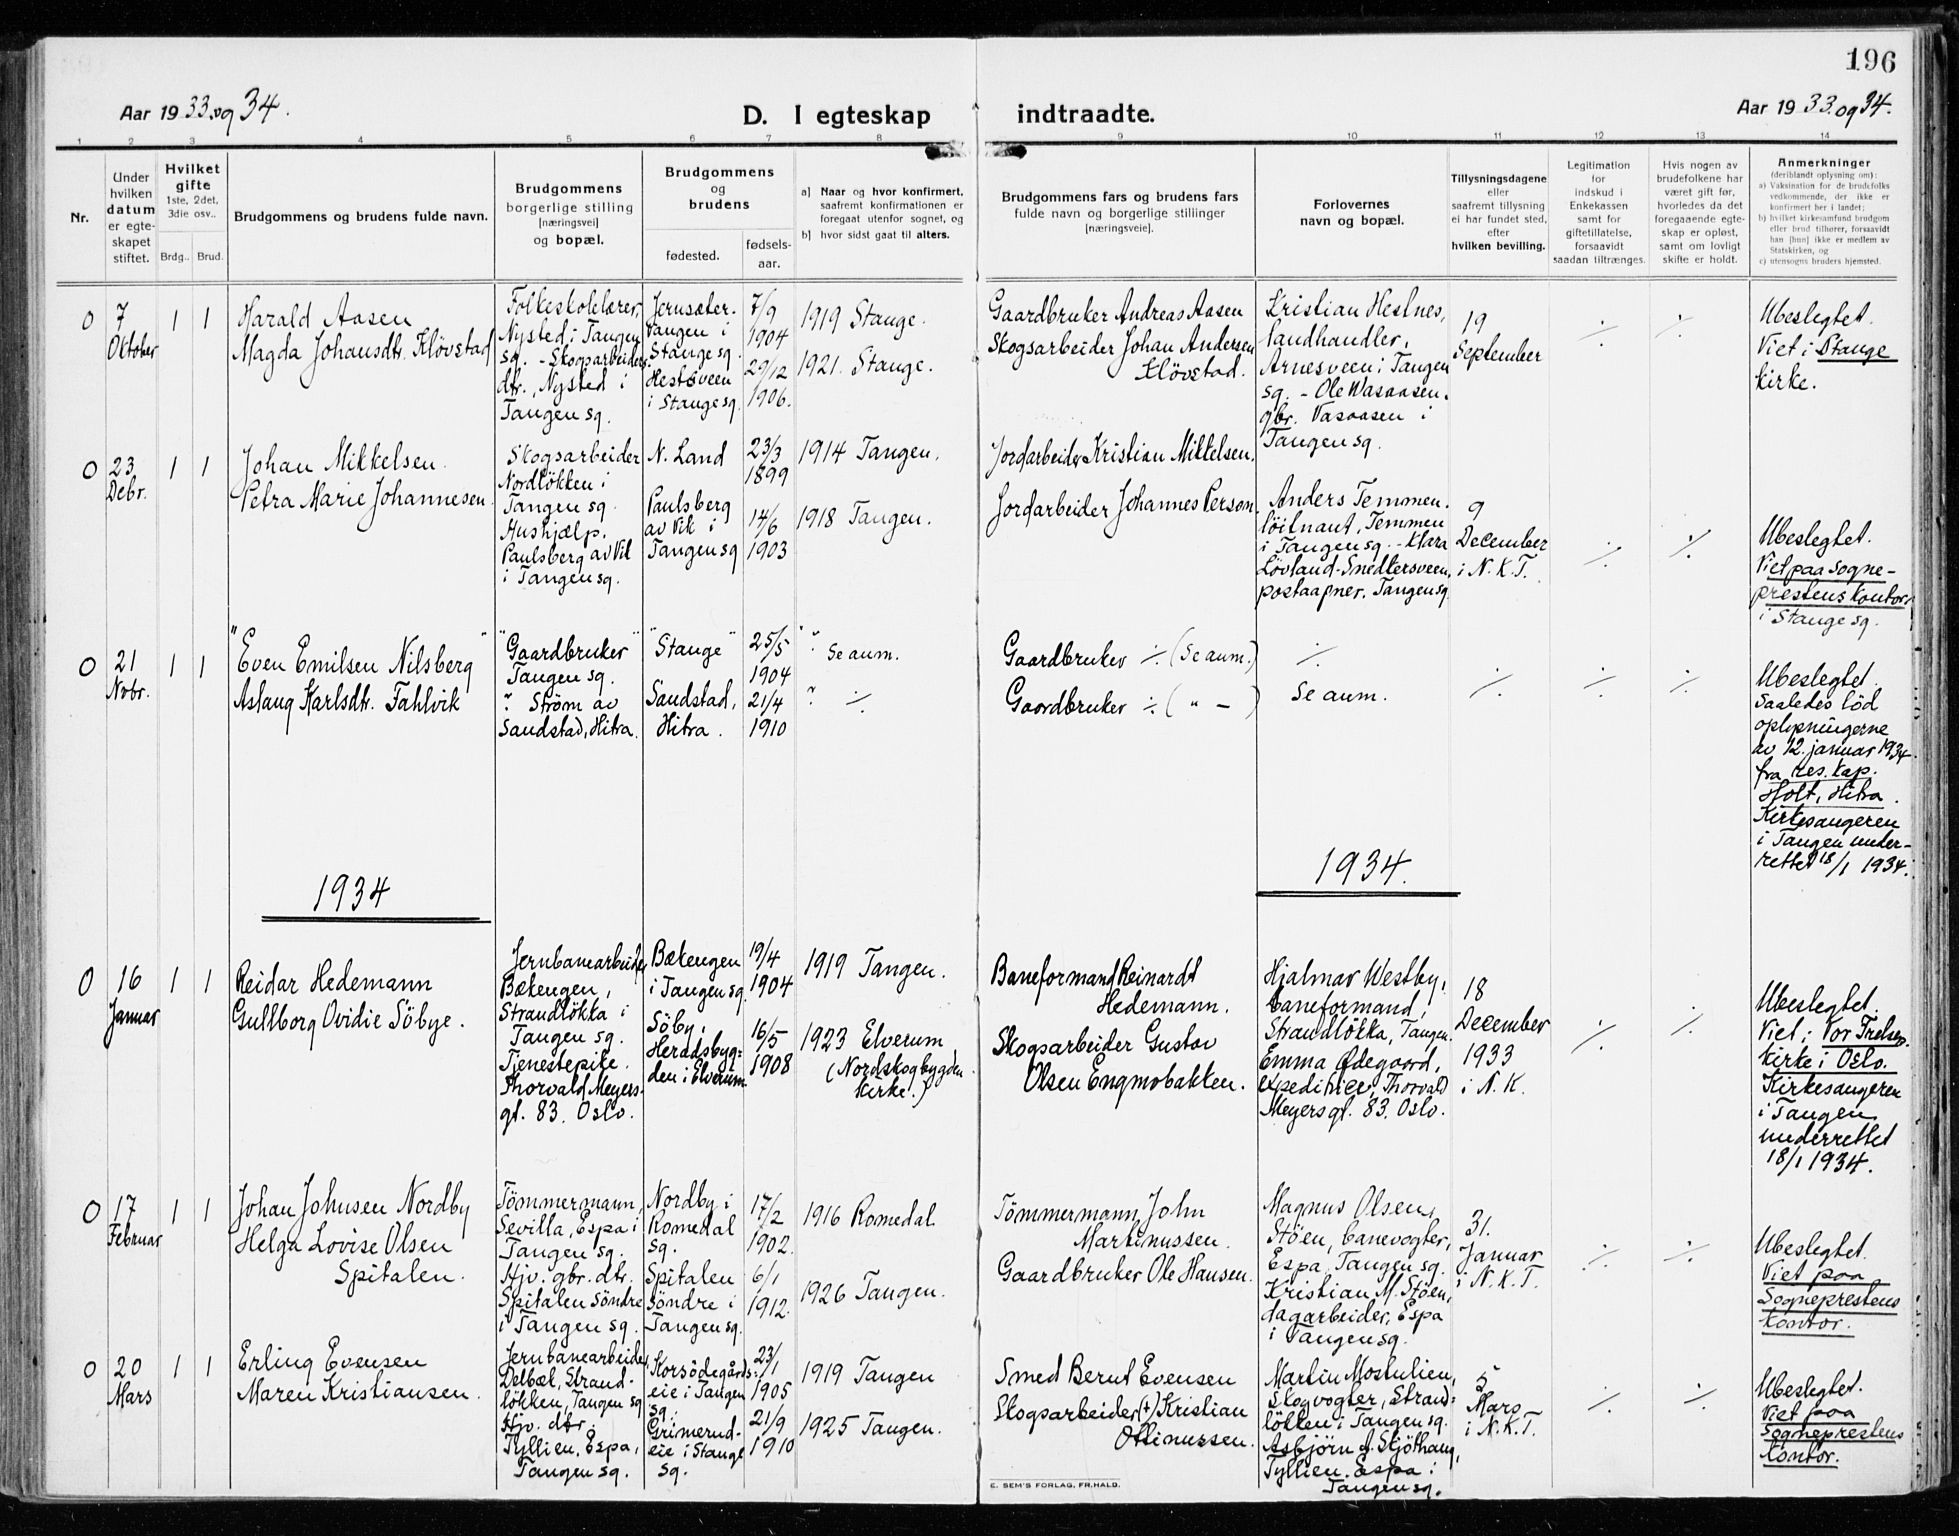 196
Aar 1933 og 34.
D. I egteskap indtraadte.
Aar 1933 og 34.
1 2 3 4 5 6 7 8 9 10 11 12 13 14
Nr.
Under
hvilken
datum
er egte-
skapet
stiftet.
Hvilket
gifte
1ste, 2det,
3die osv..
Brdg.. Brud.
Brudgommens og brudens fulde navn.
Brudgommens
borgerlige stilling
[næringsvei]
og bopæl.
Brudgommens
og
brudens
fødested.
fødsels-
aar.
a] Naar og hvor konfirmert,
saafremt konfirmationen er
foregaat utenfor sognet, og
b] hvor sidst gaat til alters.
Brudgommens fars og brudens fars
fulde navn og borgerlige stillinger
[næringsveie].
Forlovernes
navn og bopæl.
Tillysningsdagene
eller
saafremt tillysning
ei har fundet sted,
efter
hvilken bevilling.
Legitimation
for
indskud i
Enkekassen
samt for
giftetillatelse,
forsaavidt
saadan tiltrænges.
Hvis nogen av
brudefolkene har
været gift før,
hvorledes da det
foregaaende egte-
skap er opløst,
samt om lovligt
skifte er holdt.
Anmerkninger
(deriblandt oplysning om):
a) Vaksination for de brudefolks
vedkommende, der ikke er
konfirmert her i landet;
b) hvilket kirkesamfund brudgom
eller brud tilhører, forsaavidt
han [hun] ikke er medlem av
Statskirken, og
c) utensogns bruders hjemsted.
0
7
Oktober
1 1
Harald Aasen
Magda Johansdtr. Kløvstad
Folkeskolelærer,
Nysted i Tangen
sq. - Skogsarbeider-
dtr., Nysted i
Tangen sq.
Jerusæter-
Tangen i
Stange sq.
Hestøveen
i Stange sq.
7/9
1904
29/12
1906.
1919 Stange.
1921. Stange.
Gaardbruker Andreas Aasen
Skogsarbeider Johan Andersen
Kløvstad.
Kristian Hestnes,
landhandler,
Arnesveen i Tangen
sq. - Ole Wasaasen.
gbr. Vasaasen i
Tangen sq.
19
September
./.
./.
Ubeslegtet.
Viet i Stange
kirke.
0
23
Debr.
1 1
Johan Mikkelsen.
Petra Marie Johannesen.
Skogsarbeider
Nordløkken i
Tangen sq.
Hushjælp.
Paulsberg av Vik
i Tangen sq.
N. Land
Paulsberg
av Vik i
Tangen sq
23/3
1899
14/6
1903
1914 Tangen.
1918 Tangen.
Jordarbeider Kristian Mikkelsen.
Jordarbeider Johannes Person
Anders Temmen.
løitnant, Temmen
i Tangen sq. - Klara
Løvland-Smedkersveen,
postaapner. Tangen sq.
9
December
i N.K.T.
./.
./.
Ubeslegtet.
Viet paa Sogne-
prestens kontor
i Stange sq.
0
21
Nobr.
1 1
"Even Emilsen Nilsberg"
Aslaug Karlsdtr. Fahlvik
"Gaardbruker"
Tangen sq.
" Strøm av
Sandstad, Hitra.
"Stange"
Sandstad,
Hitra.
25/5
1904
21/4
1910
" Se anm.
" ./.
Gaardbruker ./. (Se anm.)
Gaardbruker ./. ( " - )
./.
Se anm.
./.
./.
./.
Ubeslegtet.
Saaledes lød
oplysningerne
av 12. januar 1934
fra res. kap.
Holt, Hitra.
Kirkesangeren
i Tangen under-
rettet 18/1 1934.
1934
1934.
0
16
Januar
1 1
Reidar Hedemann
Gullborg Ovidie Söbye.
Jernbanearbeider
Bækengen,
Strandløkka i
Tangen sq.
Tjenestepike.
Thorvald Meyers-
gt. 83. Oslo.
Bækengen
i Tangen sq.
Söby,
Heradsbyg-
den i Elverum
19/4
1904
16/5
1908
1919 Tangen.
1923 Elverum
(Nordskogbygden
kirke.)
Baneformand Reinardt
Hedemann.
Skogsarbeider Gustav
Olsen Engmobakken.
Hjalmar Westby,
baneformand,
Strandløkka, Tangen.
Emma Ødegaard,
expeditrice, Thorvald
Meyersgt. 83. Oslo.
18
December
1933
i N.K.
./.
./.
Ubeslegtet.
Viet i Vor Frelsers
kirke i Oslo.
Kirkesangeren
i Tangen
underrettet
18/1 1934.
0
17
Februar
1 1
Johan Johnsen Nordby
Helga Lovise Olsen
Spitalen.
Tömmermann,
Sevilla, Espa i
Tangen sq.
Hjv. gbr. dtr.
Spitalen Söndre
i Tangen sq.
Nordby i
Romedal
sq.
Spitalen
söndre i
Tangen sq.
17/2
1902.
6/1
1912.
1916 Romedal.
1926 Tangen.
Tömmermann John
Martinussen.
Gaardbruker Ole Hansen.
Magnus Olsen,
Støen, banevogter,
Espa, Tangen sq.
Kristian M. Støen,
dagarbeider, Espa
i Tangen sq.
31.
Januar
i N.K.T.
./.
./.
Ubeslegtet.
Viet paa
Sogneprestens
kontor.
0
20
Mars
1 1
Erling Evensen
Maren Kristiansen.
Jernbanearbeider
Delbæk, Strand-
løkken, Tangen sq
Hjv. dtr.
Tyllien, Espa,
Tangen sq.
Korsödegårds-
eie i Tangen
sq.
Grimerud-
eie i Stange
sq.
23/1
1905
21/9
1910
1919 Tangen
1925 Tangen.
Smed Bernt Evensen
Skogsarbeider (+) Kristian
Ottinussen.
Martin Mostulien,
Skogvogter, Strand-
løkken i Tangen sq.
Asbjörn A. Skjöthaug,
Tyllien, Espa i
Tangen sq.
5
Mars
i N.K.T.
./.
./.
Ubeslegtet.
Viet paa
Sogneprestens
kontor.
E. SEM'S FORLAG, FR.HALD.